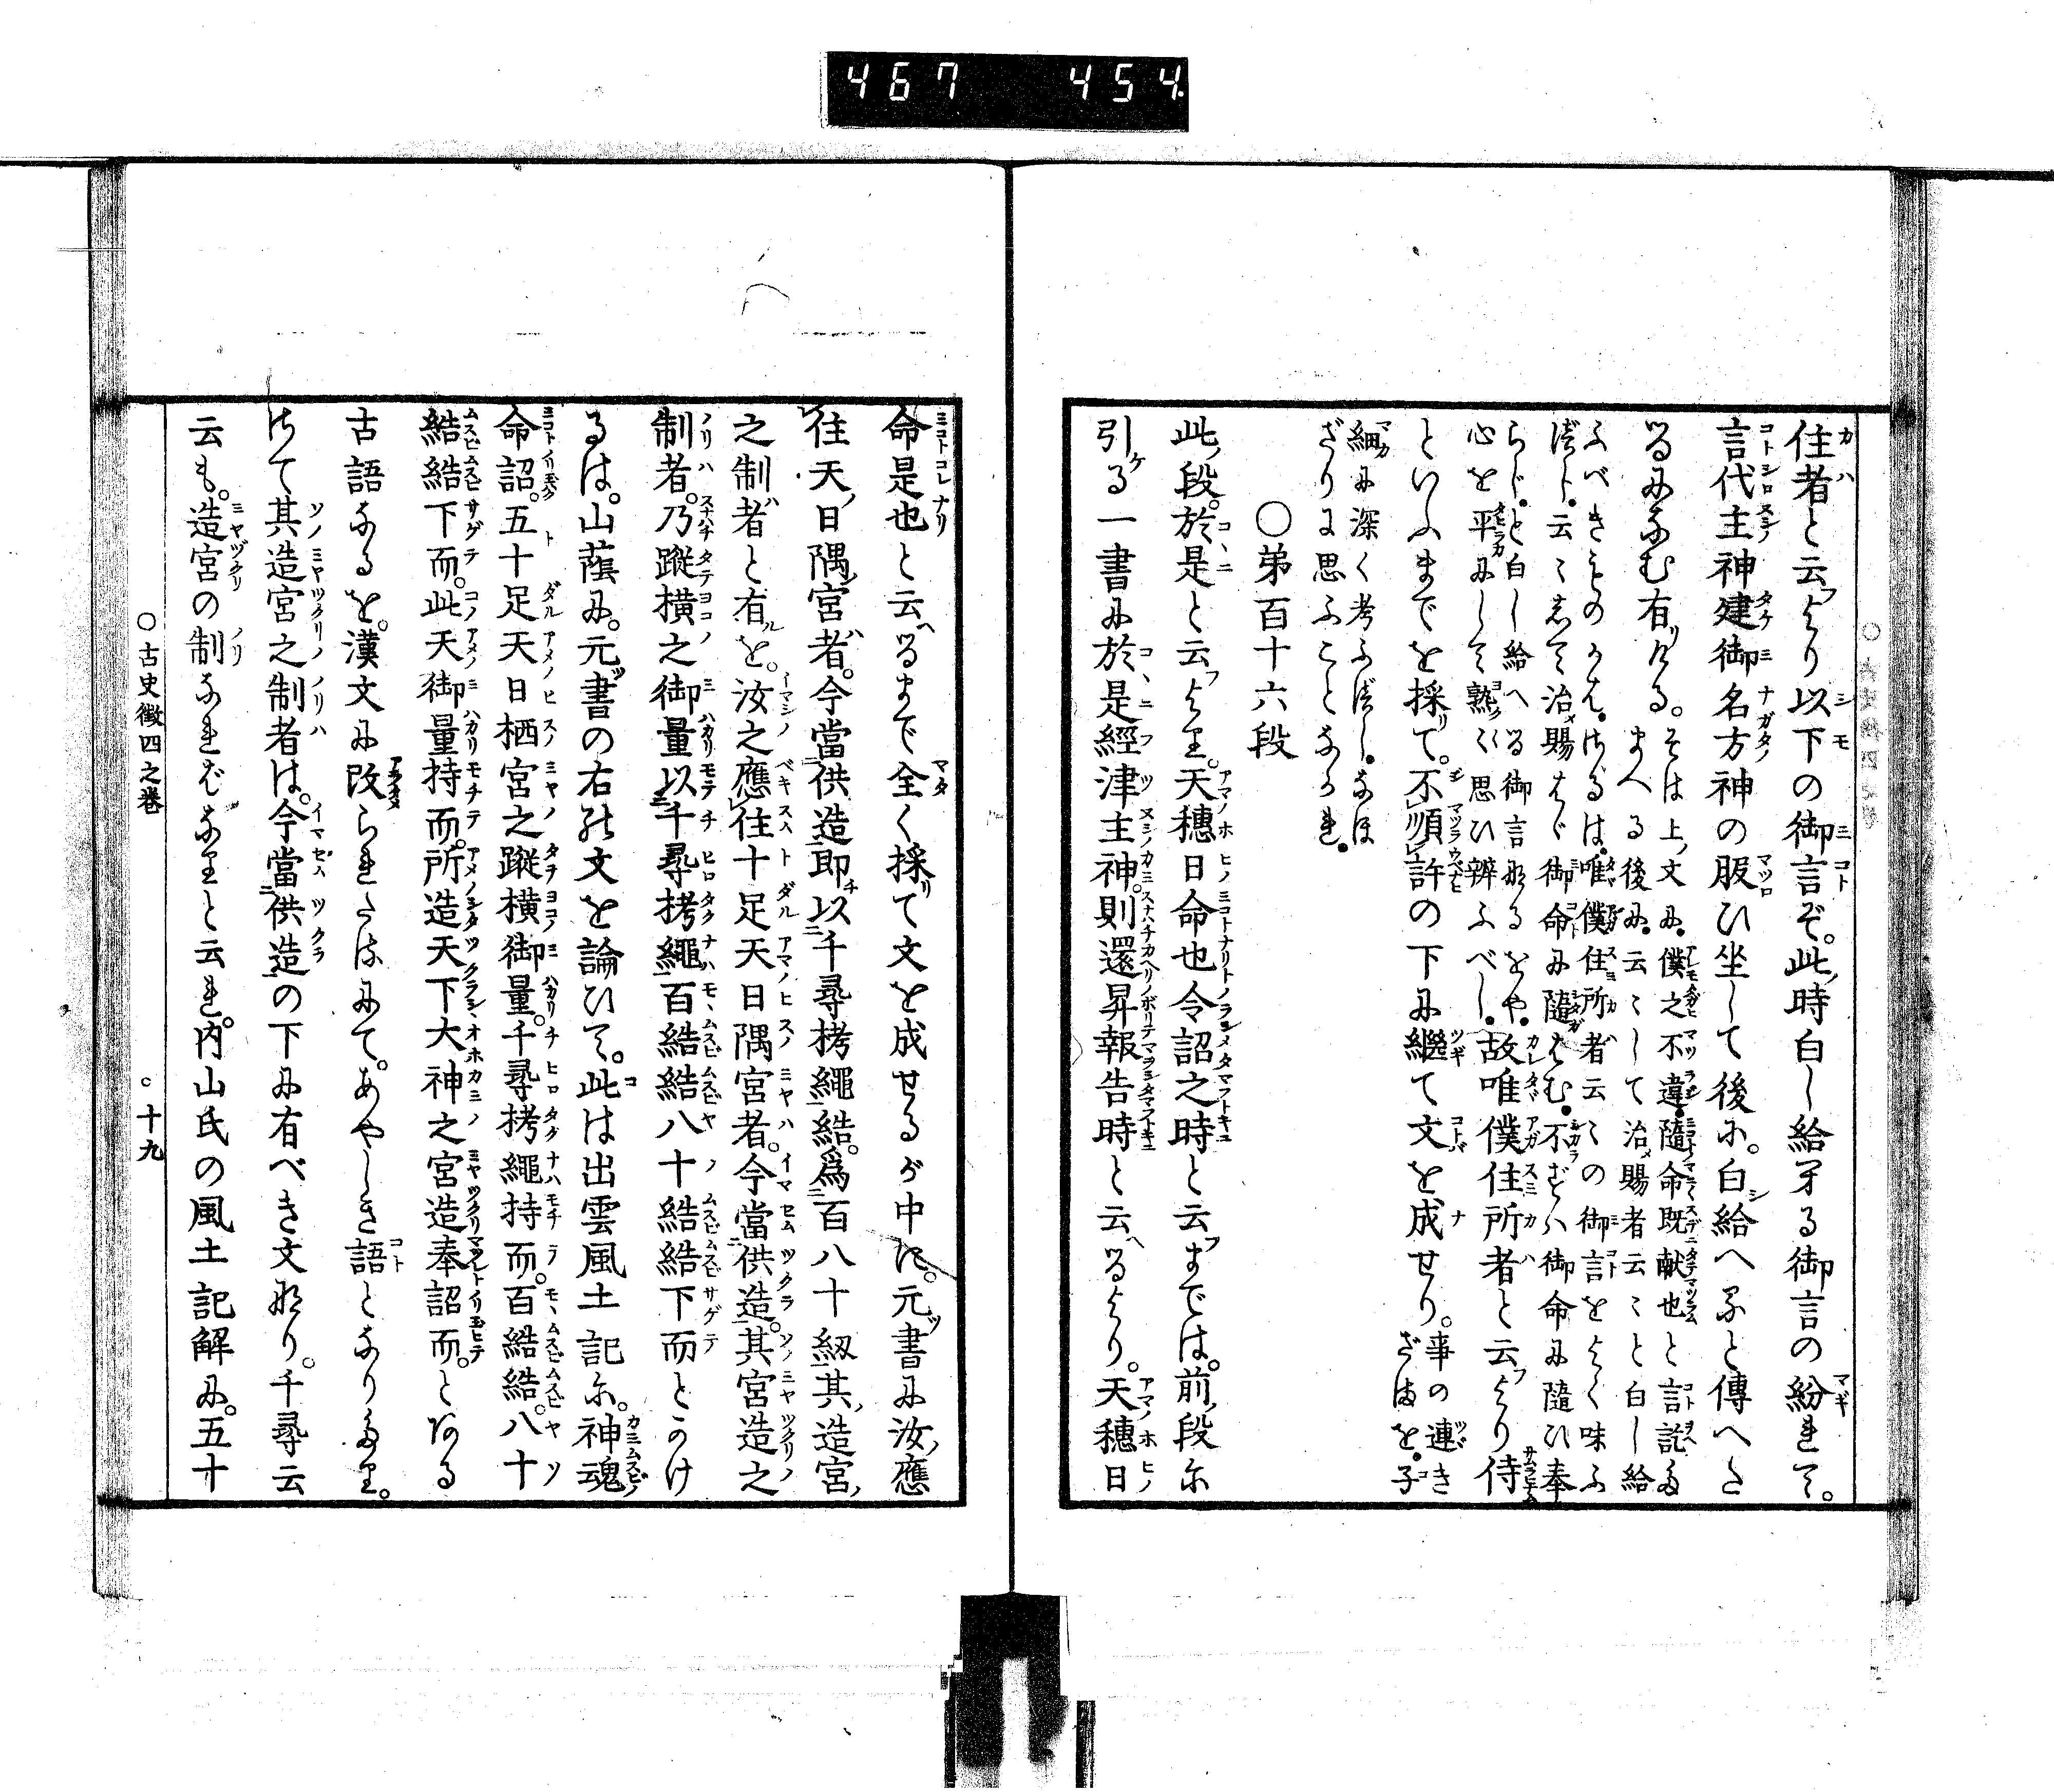 467 454
住者と云より以下の御言ぞ。此時白し給へる御言の紛れて。
言代主神建御名方神の服ひ坐して後に。白給へりと傳へた
るになむ有ける。そは上文に。僕之不違。隨命既献也と言訖た
まへる後に。云々して治賜者云々と白し給
ふべきものかは。さるは。唯僕住所者云々の御言をよく味ふ
べし。云々して治賜はゞ御命に隨はむ。不ずは御命に隨ひ奉
らじ。と白し給へる御言なるをや。故唯僕住所者と云より侍
心を平にして熟く思ひ辨ふべし。
といふまでを採て。不順許の下に繼て文を成せり。事の連き
ざまを。子
細に深く考ふべし。なほ
ざりに思ふことなかれ。
○第百十六段
此段。於是と云より。天穗日命也令詔之時と云までは。前段に
引る一書に於是經津主神。則還昇報告時と云るより。天穗日
命是也と云るまで全く採て文を成せるが中に。元書に汝應
住天日隅宮者。今當供造即以千尋栲繩結。爲百八十紐其造宮
之制者と有るを。汝之應住十足天日隅宮者。今當供造。其宮造之
制者。乃蹤横之御量以千尋栲繩百結結八十結結下而とかけ
るは。山蔭に。元書の右の文を論ひて。此は出雲風土記に。神魂
命詔。五十足天日栖宮之蹤横御量。千尋栲繩持而。百結結。八十
結結下而。此天御量持而。所造天下大神之宮造奉詔而。とある
古語なるを。漢文に改られたるにて。あやしき語となりたり。
さて其造宮之制者は。今當供造の下に有べき文なり。千尋云
云も。造宮の制なればなりと云れ。内山氏の風土記解に。五十
○古史徴四之巻 ○十九